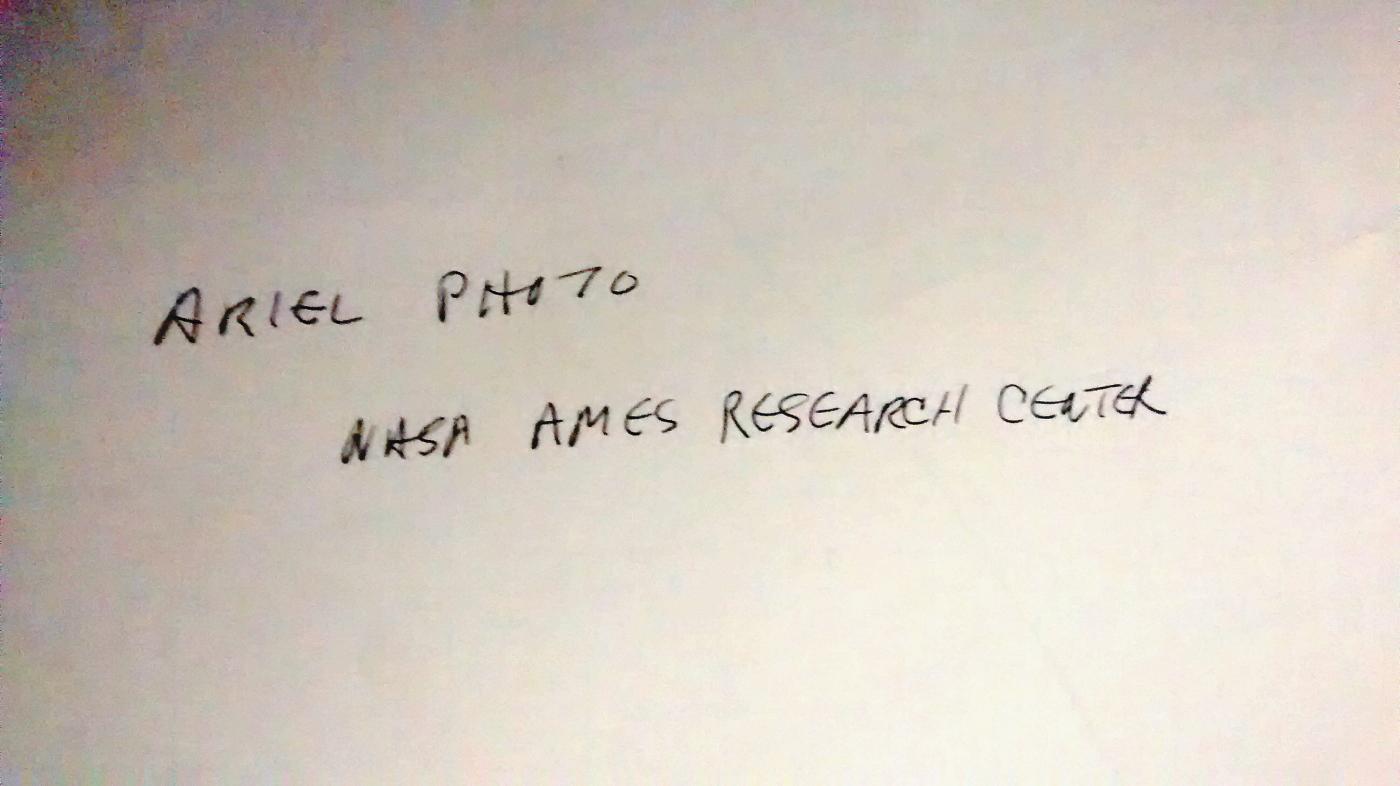 ARIEL PHOTO
NASA AMES RESEARCH CENTER